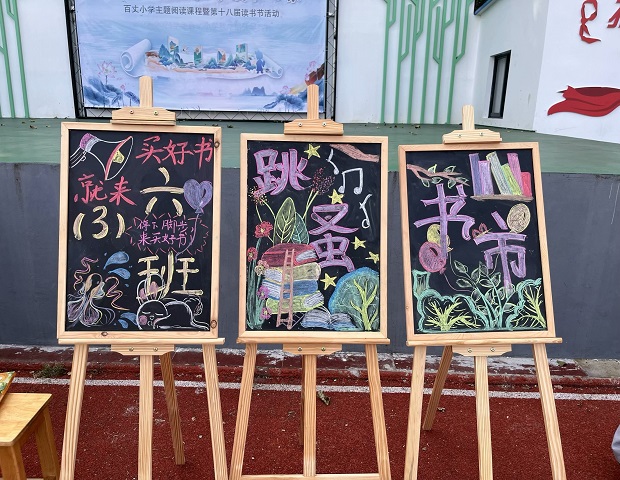 百丈小学主题阅读课程暨第十八届读书节活动
买好书
就来
六
(3)
班
停下脚步
来买好书
跳
蚤
书
市